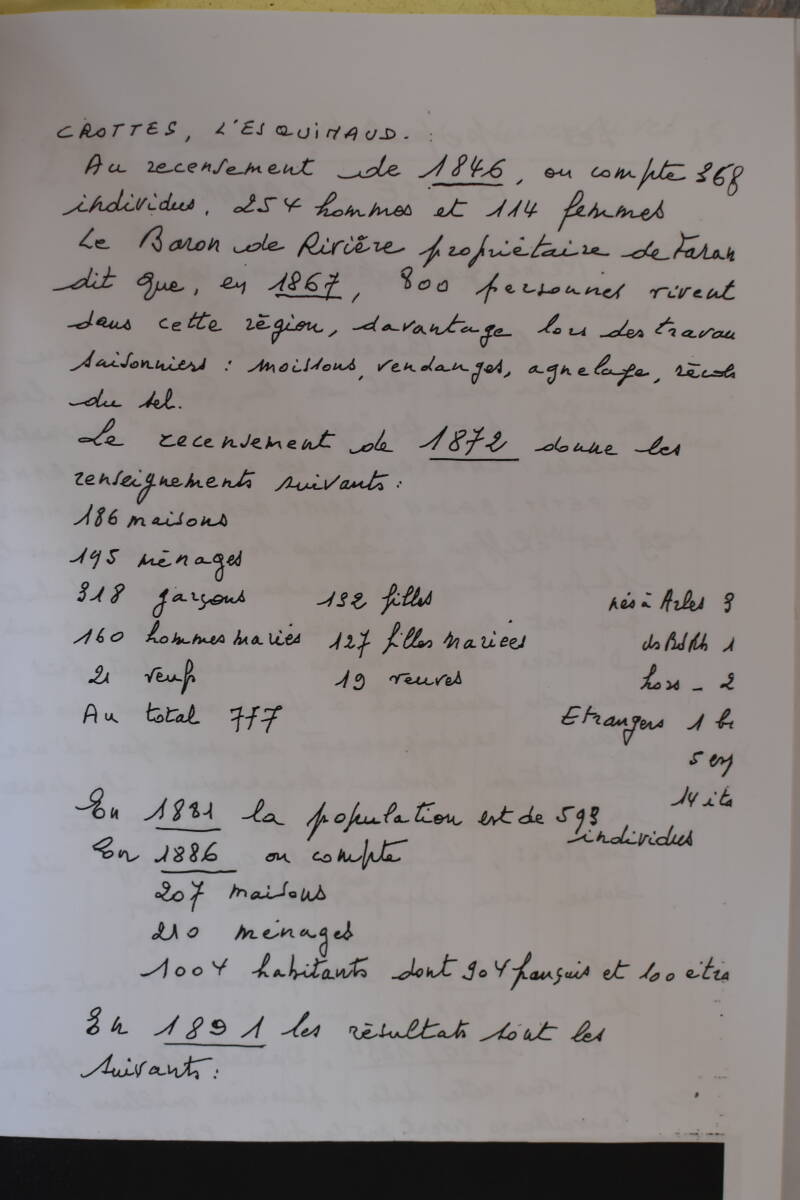 CROTTES, L'ESQUINAUD.
Au recensement de 1846, on compte 368
individus, 254 hommes et 114 femmes
Le Baron de Rivière propriétaire de Faran
dit que, en 1867, 800 personnes vivent
dans cette région, davantage lors des travau
saisonniers : moissons, vendanges, agnelage, récol
du sel.
Le recensement de 1872 donne les
renseignements suivants :
186 maisons
195 ménages
318 garçons 132 filles nés à Arles 3
160 hommes mariés 127 filles mariées ds BdRh 1
21 veufs 19 veuves hors - 2
Au total 777 Etrangers 1 be
5 esp
14 ita
En 1881 la population est de 593
individus
En 1886 on compte
207 maisons
210 ménages
1004 habitants dont 904 français et 100 étra
En 1891 les résultats sont les
suivants :